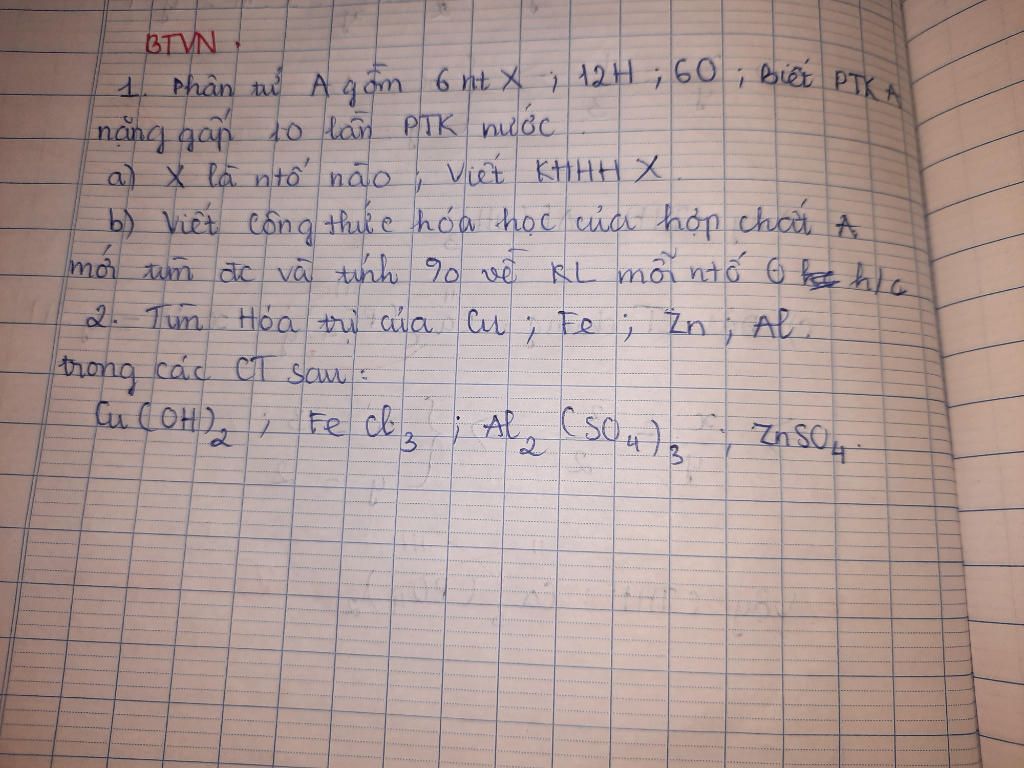 BTVN.
1. Phân tử A gồm 6 nt X ; 12H ; 6O ; Biết PTK A
nặng gấp 10 lần PTK nước.
a) X là ntố nào, Viết KHHH X.
b) Viết công thức hóa học của hợp chất A
mới tìm đc và tính % về KL mỗi ntố h/c
2. Tìm Hóa trị của Cu ; Fe ; Zn ; Al.
trong các CT sau:
Cu(OH)₂ ; FeCl₃ ; Al₂(SO₄)₃ ; ZnSO₄.